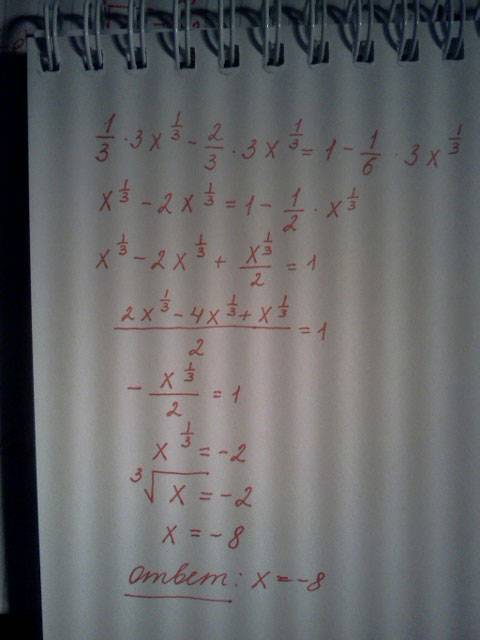 1/3 · 3x^(1/3) - 2/3 · 3x^(1/3) = 1 - 1/6 · 3x^(1/3)
x^(1/3) - 2x^(1/3) = 1 - 1/2 · x^(1/3)
x^(1/3) - 2x^(1/3) + x^(1/3)/2 = 1
(2x^(1/3) - 4x^(1/3) + x^(1/3))/2 = 1
- x^(1/3)/2 = 1
x^(1/3) = -2
∛x = -2
x = -8
ответ: x = -8